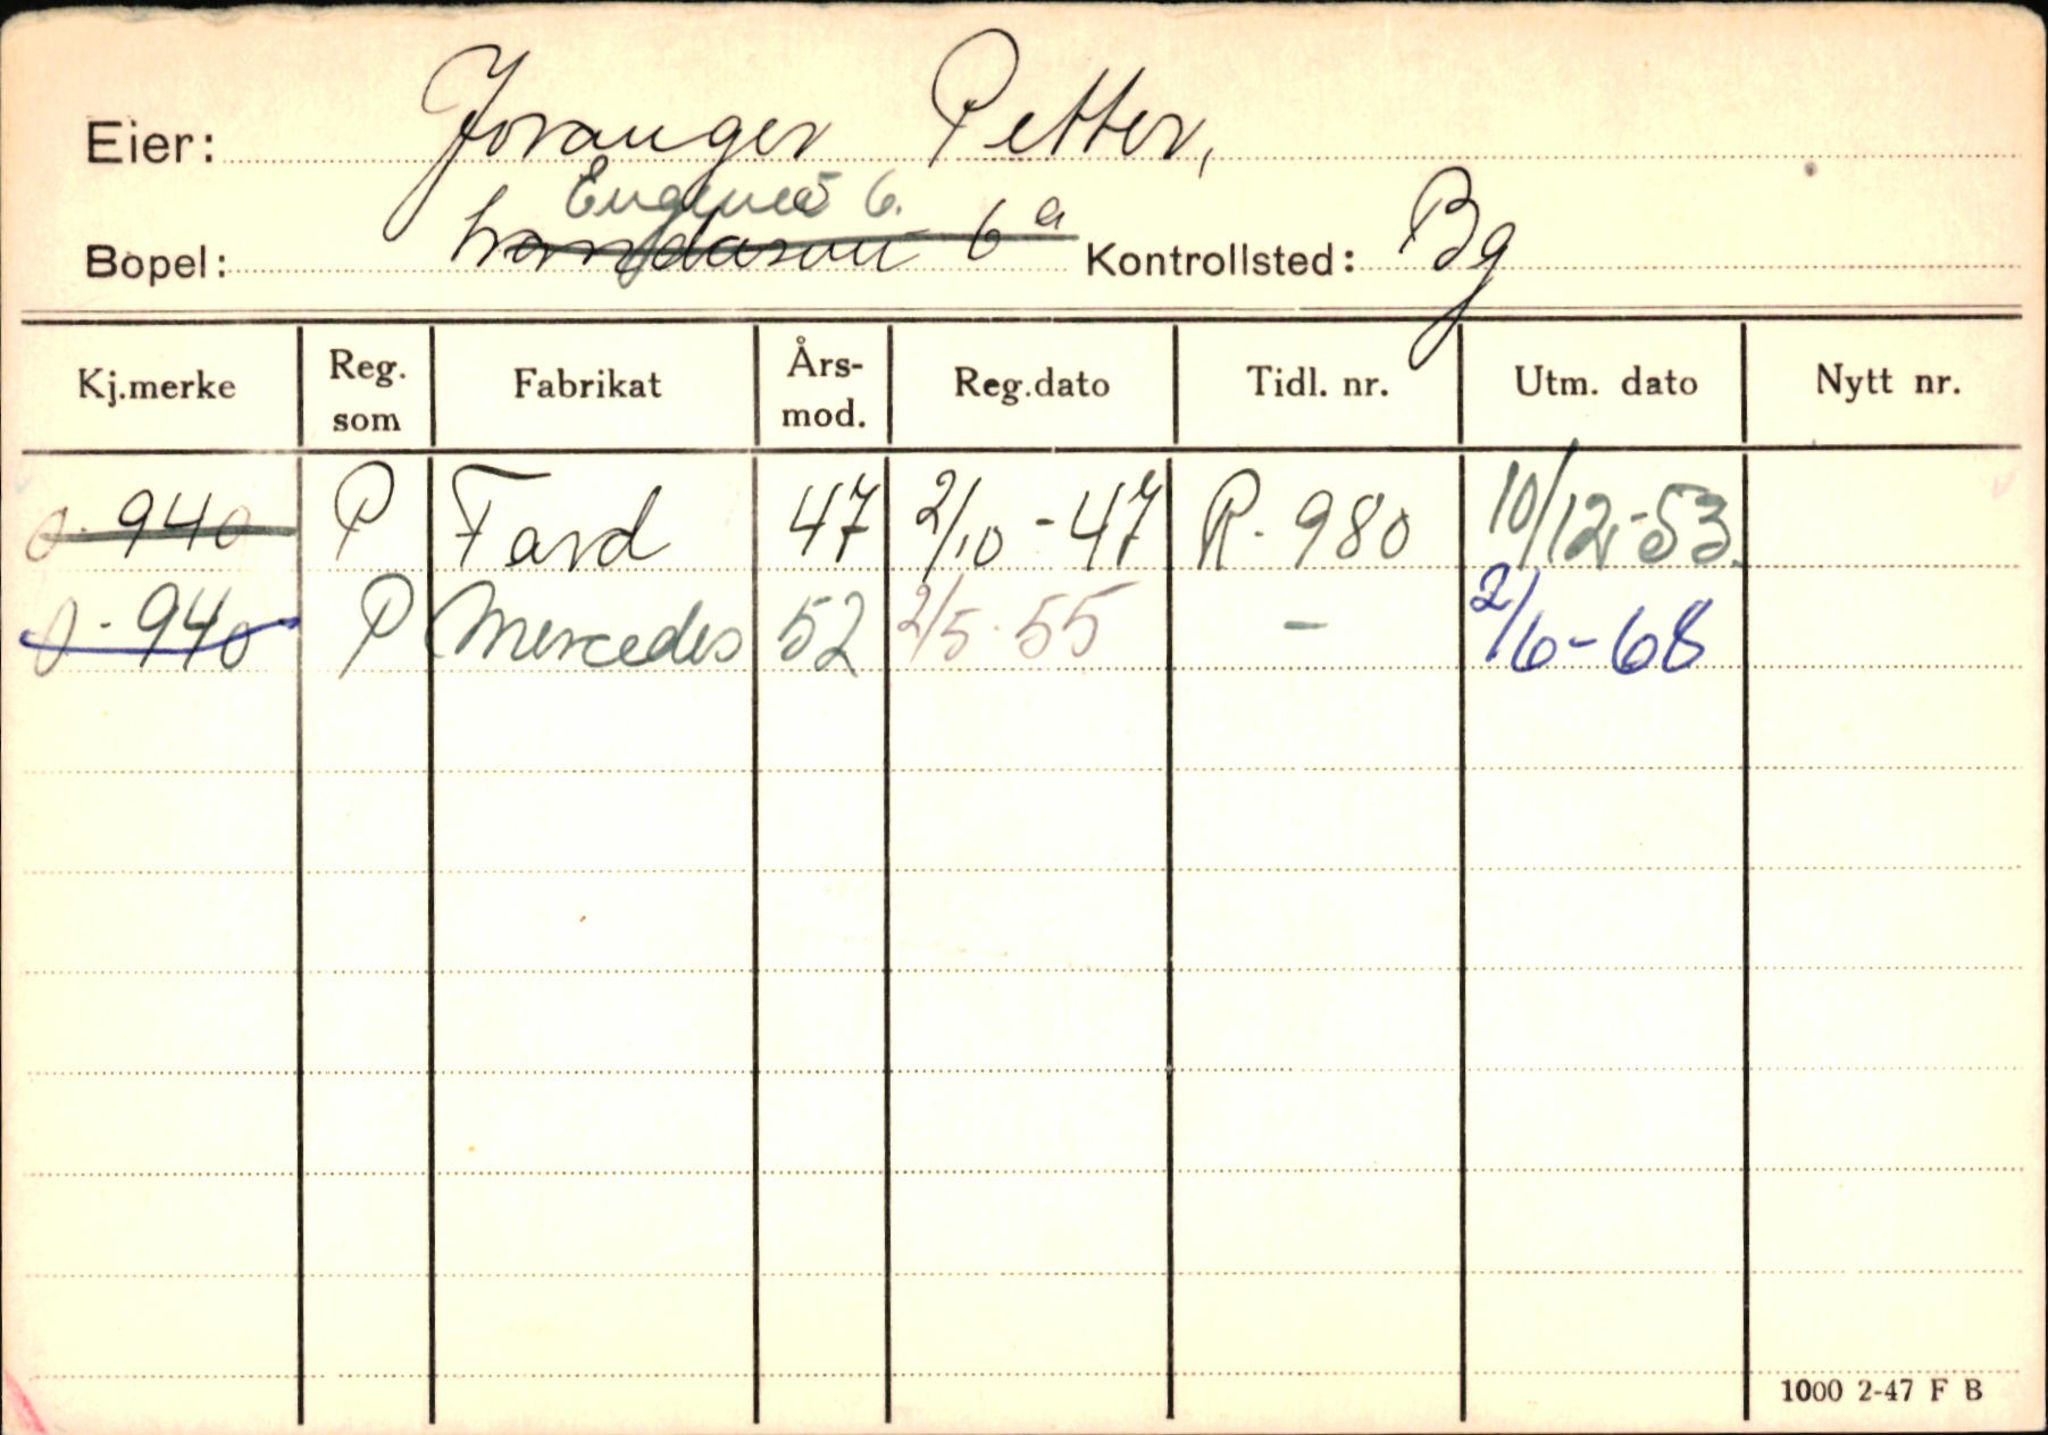 Eier: Joranger Petter,
Engenes 6.
Bopel: 6a Kontrollsted: Bg
Kj.merke Reg. som Fabrikat Års-mod. Reg.dato Tidl. nr. Utm. dato Nytt nr.
O-940 P Ford 47 2/10-47 R-980 10/12-53.
O-940 P Mercedes 52 2/5-55 - 2/6-68
1000 2-47 F B